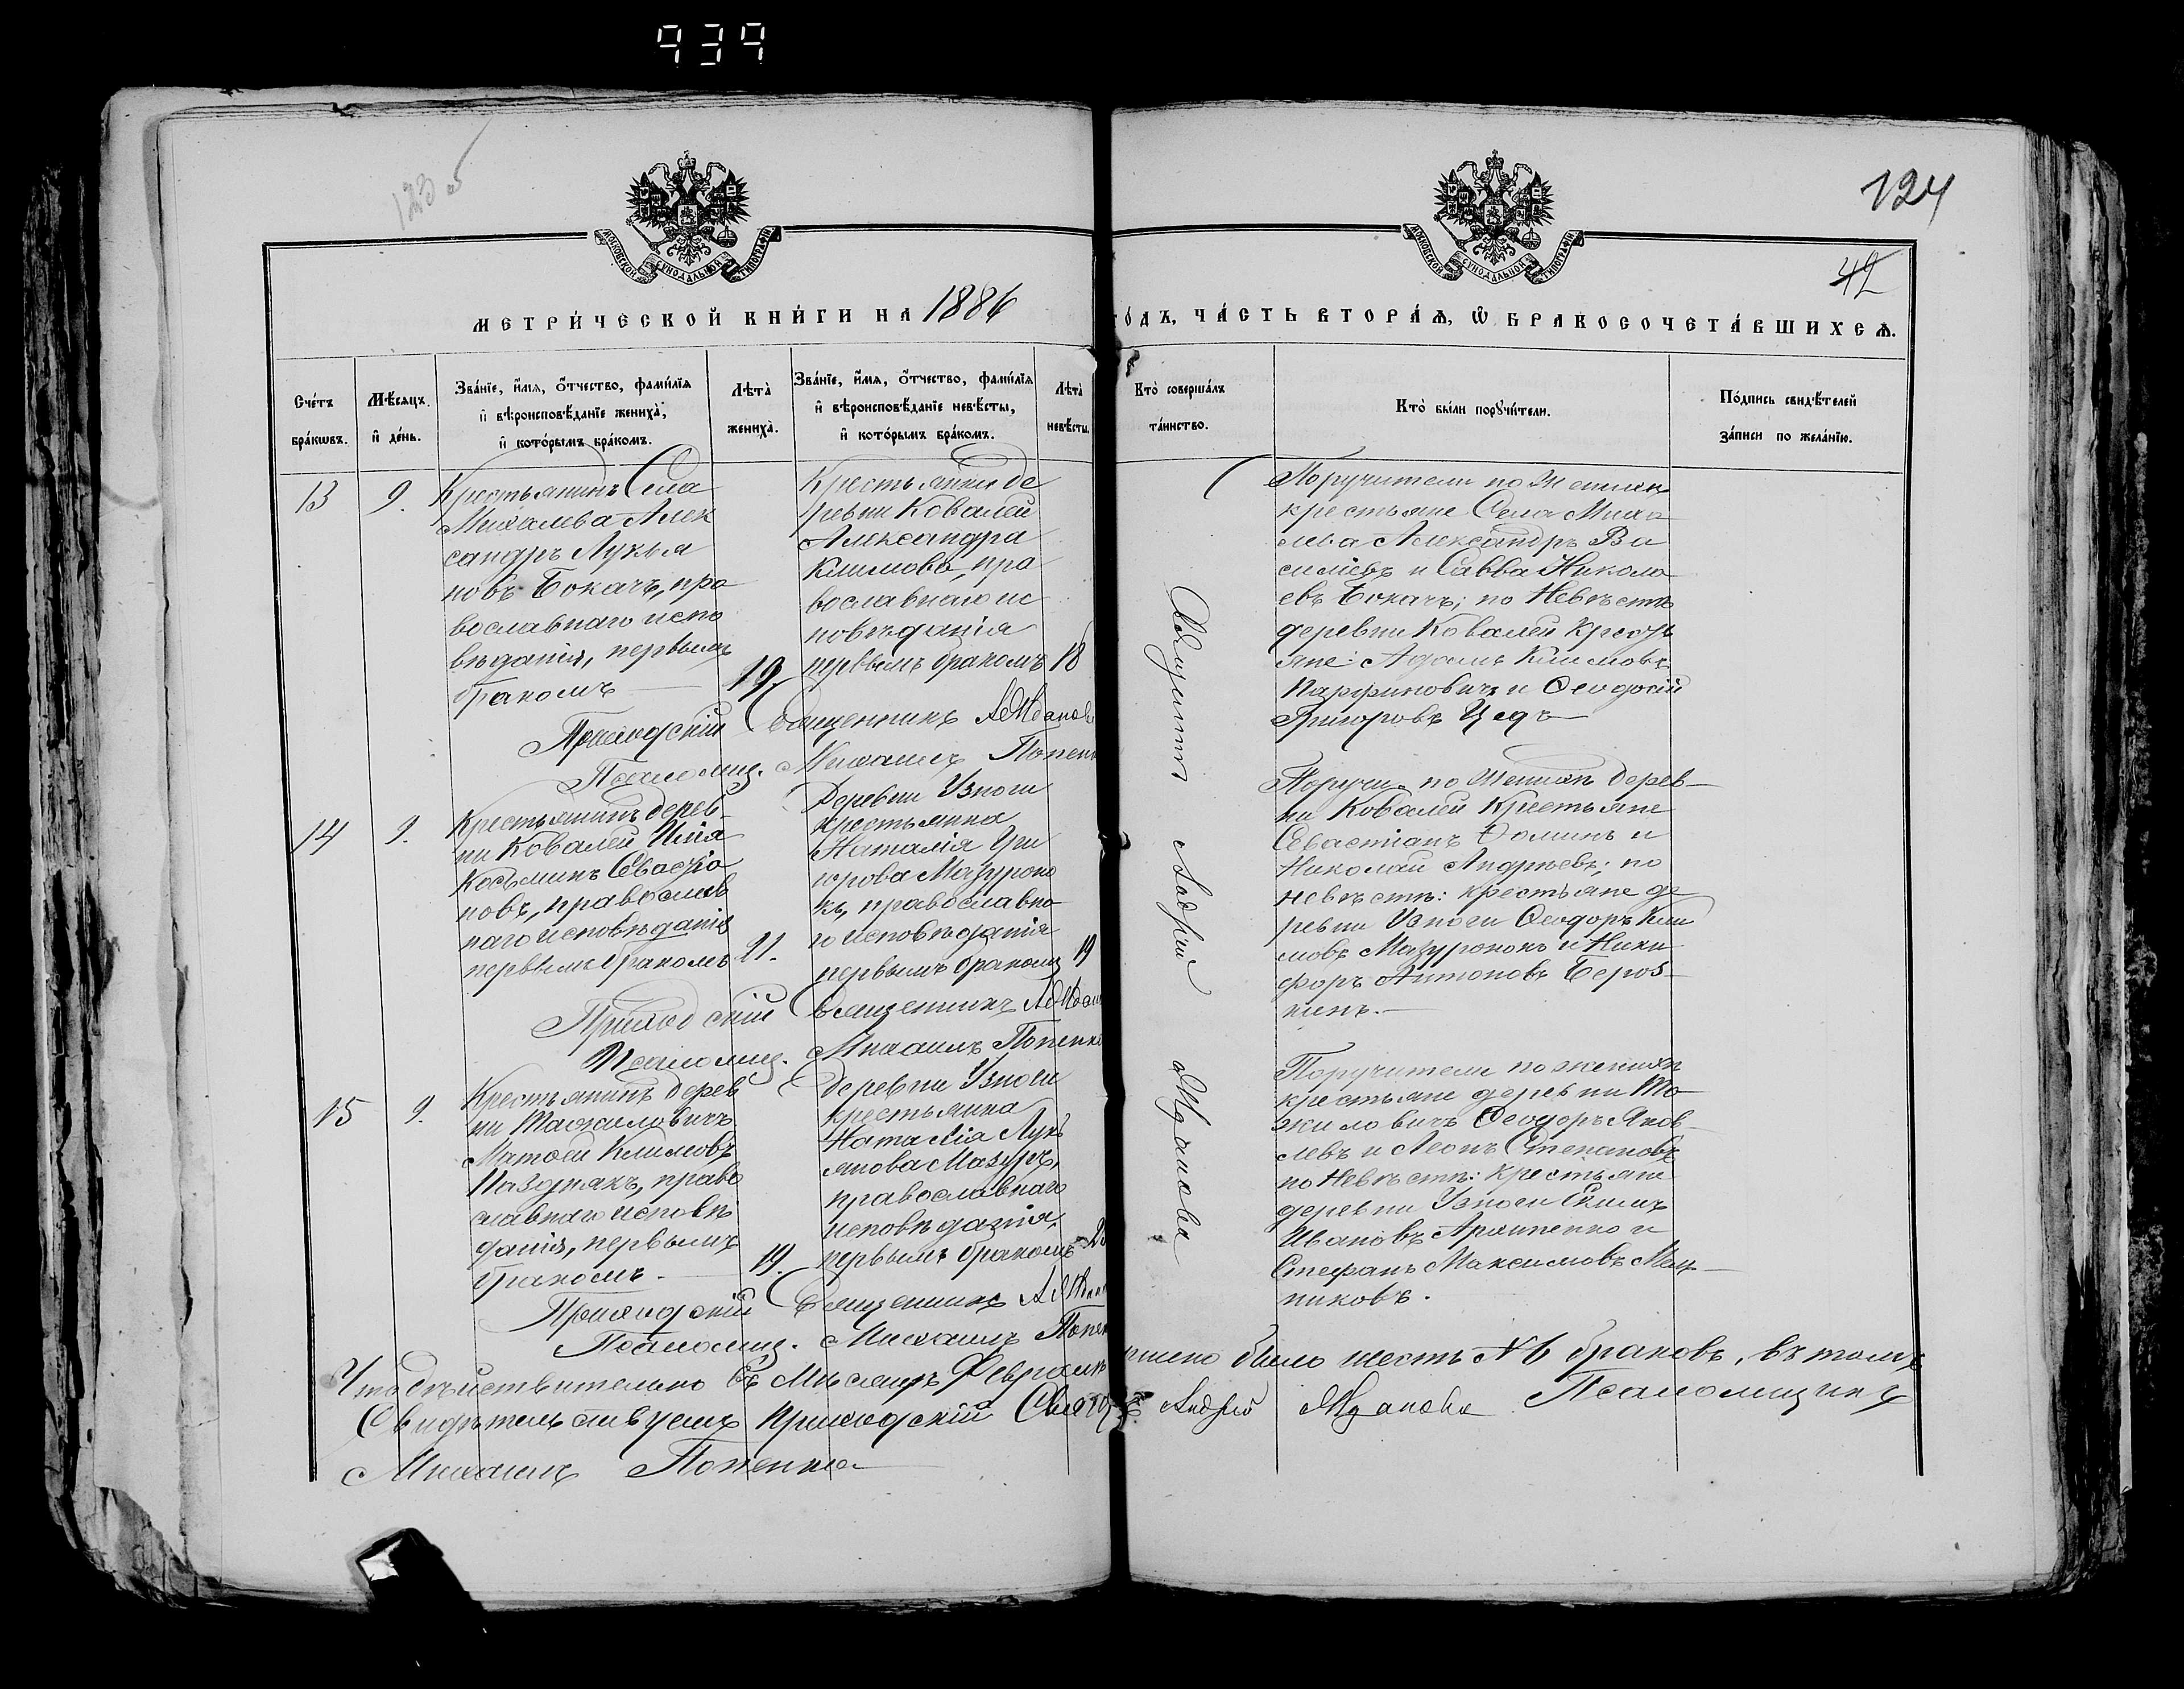 939
123 об
124
42
МОСКОВСКОЙ СѴНОДАЛЬНОЙ ТИПОГРАФІИ
МОСКОВСКОЙ СѴНОДАЛЬНОЙ ТИПОГРАФІИ
МЕТРИ́ЧЕСКОЙ КНИ́ГИ НА 1886
ГО́ДЪ, ЧА́СТЬ ВТОРА́Ѧ, Ѡ҆ БРАКОСОЧЕТА́ВШИХСѦ.
Сче́тъ
бра́кѡвъ.
Мѣ́сяцъ
и҆ де́нь.
Зва́нїе, и҆́мѧ, ѻ҆́тчество, фамѝлїѧ
и҆ вѣроисповѣ́данїе жениха̀,
и҆ кото́рымъ бра́комъ.
Лѣта̀
жениха̀.
Зва́нїе, и҆́мѧ, ѻ҆́тчество, фамѝлїѧ
и҆ вѣроисповѣ́данїе невѣ́сты,
и҆ кото́рымъ бра́комъ.
Лѣта̀
невѣ́сты.
Кто̀ соверша́лъ
та́инство.
Кто̀ бы́ли порꙋчи́тели.
По́дпись свидѣ́телей
за́писи по жела́нїю.
13
9.
Крестьянинъ Села
Михалева Алек
сандръ Лукья
новъ Бокачъ, пра
вославнаго испо
вѣданія, первымъ
бракомъ
19.
Крестьянка де
ревни Ковалей
Александра
Климова, пра
вославнаго ис
повѣданія
первымъ бракомъ
18
Приходскій Священникъ А. Жданов
Псаломщ. Михаилъ Попенк
Поручители по Женихѣ
крестьяне Села Миха
лева Александръ Ва
силіевъ и Савва Никола
евъ Бокачъ; по Невѣстѣ
деревни Ковалей Кресть
яне: Адамъ Климовъ
Парфиновичъ и Ѳеодосій
Григоровъ
14
9.
Крестьянинъ дерев
ни Ковалей Илія
Косьминъ Севастіа
новъ, православ
наго исповѣданія
первымъ бракомъ
21.
Деревни Узноги
крестьянка
Наталія Гри
горова Мазуроно
къ, православна
го исповѣданія
первымъ бракомъ
19
Приходскій Священникъ А. Ждан
Псаломщ. Михаилъ Попенко
Поручи. по Женихѣ дерев
ни Ковалей Крестьяне
Севастіанъ Ѳоминъ и
Николай Андреевъ; по
невѣстѣ: крестьяне де
ревни Узноги Ѳеодоръ Кли
мовъ Мазуронокъ и Ники
форъ Антоновъ Бероз
кинъ.
15
9.
Крестьянинъ дерев
ни Мажиловичъ
Матѳей Климовъ
Паздникъ, право
славнаго исповѣ
данія, первымъ
бракомъ.
19.
деревни Узноги
крестьянка
Наталія Лукь
янова Мазуръ,
православнаго
исповѣданія,
первымъ бракомъ
Приходскій Священникъ А. Ждан
Псаломщ. Михаилъ Попен
Поручители по женихѣ
крестьяне деревни Ма
жиловичъ Ѳеодоръ Яков
левъ и Леонъ Степановъ
по Невѣстѣ: крестьяне
деревни Узноги Екимъ
Ивановъ Архипенко и
Стефанъ Максимовъ Мель
никовъ.
Священникъ Андрей Жданова
Что дѣйствительно въ Мѣсяцѣ Февралѣ ршено было шесть №6 браковъ, въ томъ
Свидѣтельствуемъ Приходскій Свящ Андрей Жданова Псаломщикъ
Михаилъ Попенко